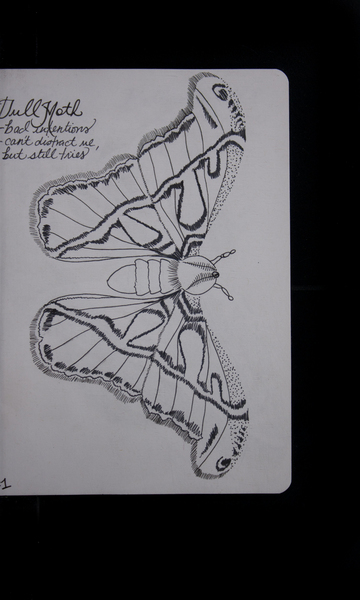 Dull Moth
- bad intentions
- can't distract me,
but still tries
-1